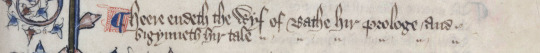 ¶ Heere endeth the Wyf of Bathe hir prologe And
bigynneth hir tale